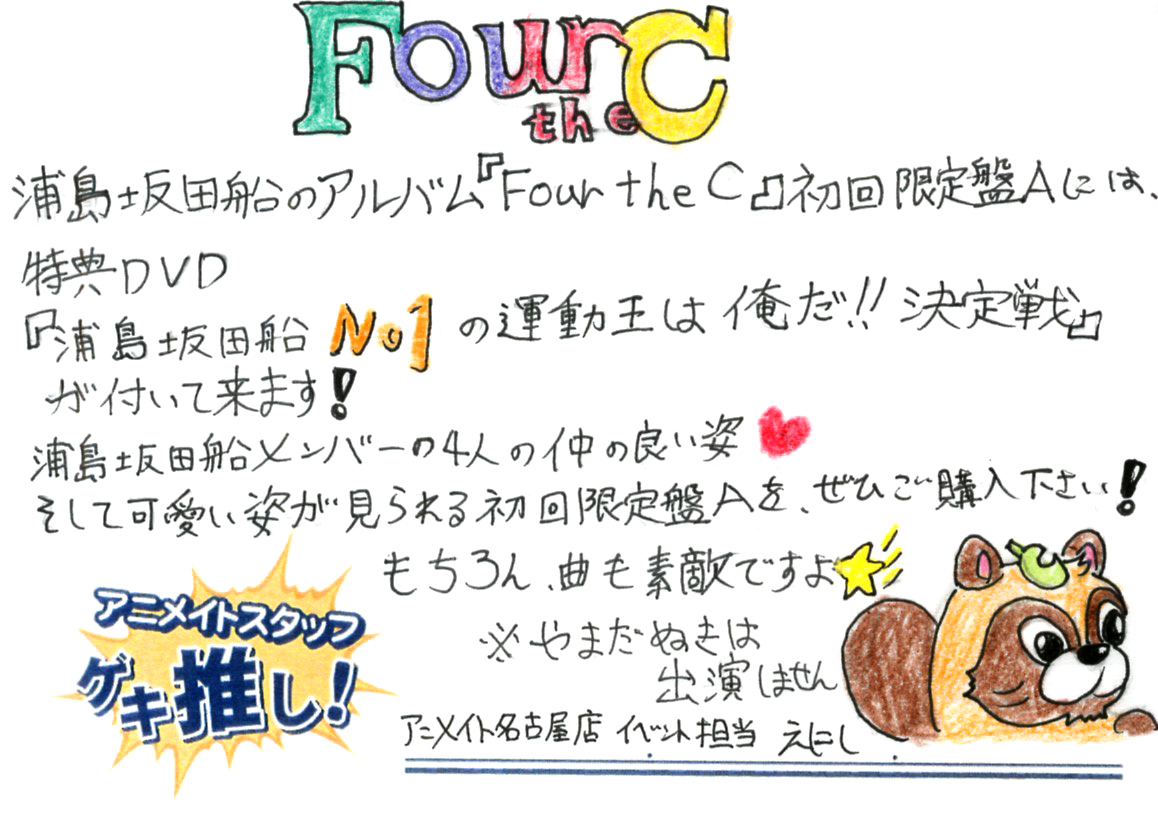 Four the C
浦島坂田船のアルバム『Four the C』初回限定盤Aには、
特典DVD
『浦島坂田船No1の運動王は俺だ!!決定戦』
が付いて来ます!
浦島坂田船メンバーの4人の仲の良い姿
そして可愛い姿が見られる初回限定盤Aを、ぜひご購入下さい!
もちろん、曲も素敵ですよ
※やまだぬきは
出演しません
アニメイトスタッフ
ゲキ推し!
アニメイト名古屋店 イベント担当 えにし